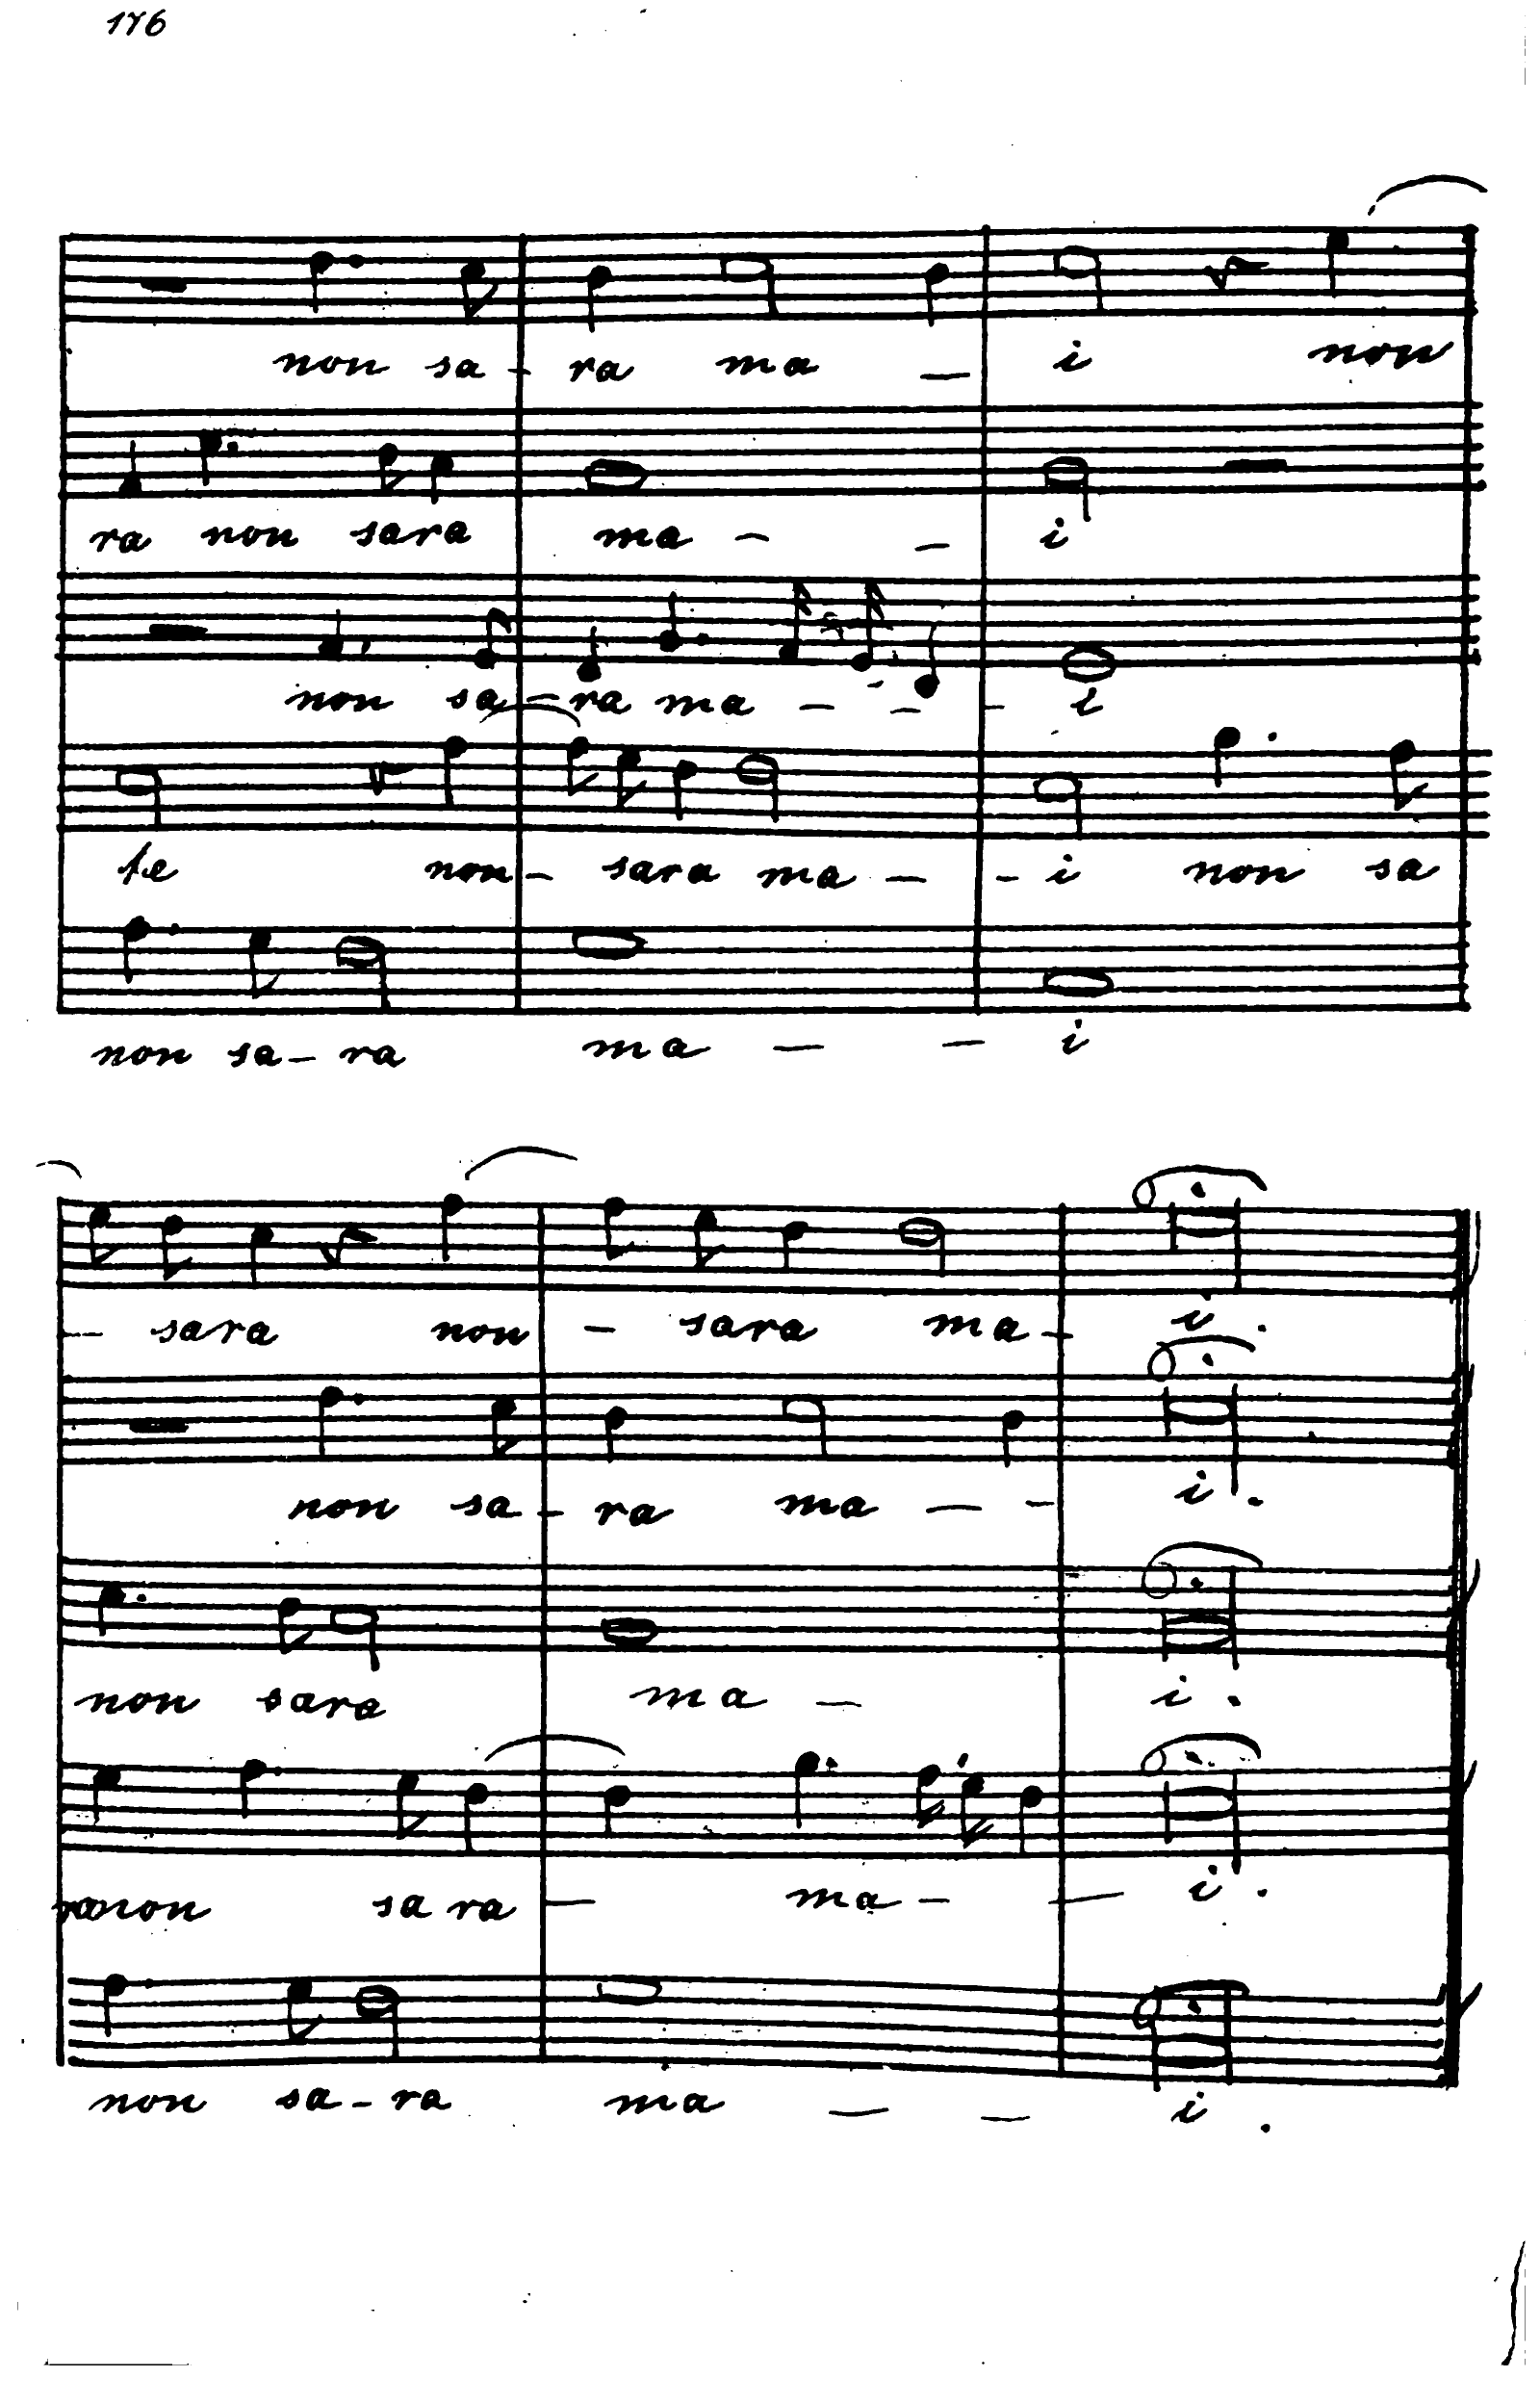 176
non sa - ra ma - i non
ra non sara ma - - i
non sa - ra ma - - - i
te non - sara ma - - i non sa
non sa - ra ma - - i
- sara non - sara ma - i.
non sa - ra ma - - i.
non sara ma - i.
ra non sara - ma - - i.
non sa - ra ma - - i.